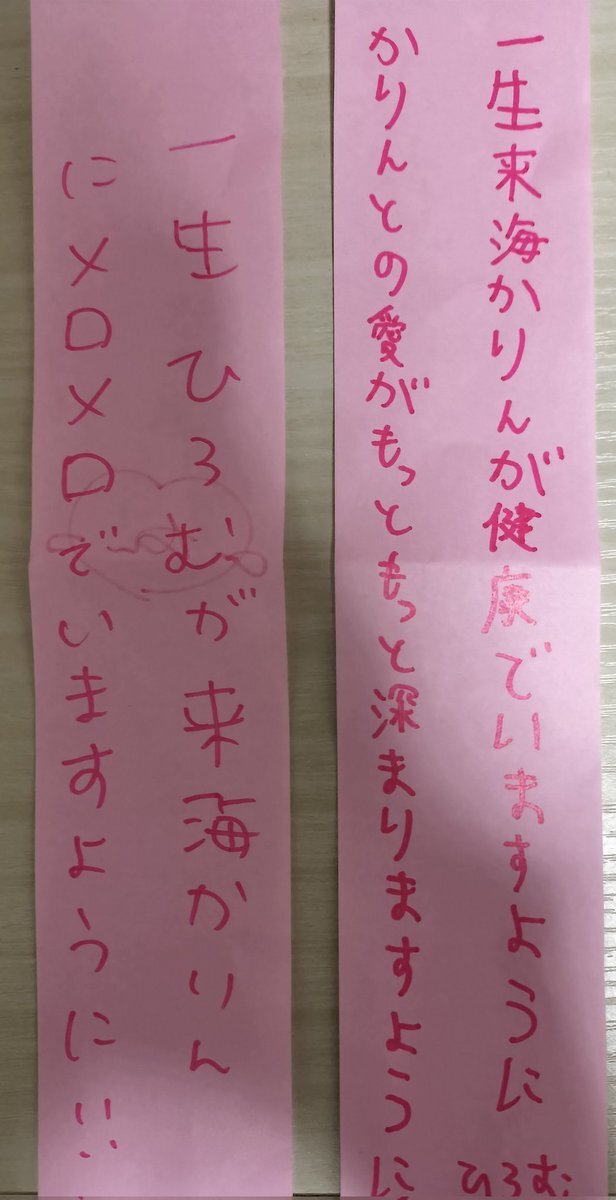 一生来海かりんが健康でいますように
かりんとの愛がもっともっと深まりますように
ひろむ
一生ひろむが来海かりん
にメロメロでいますように!!